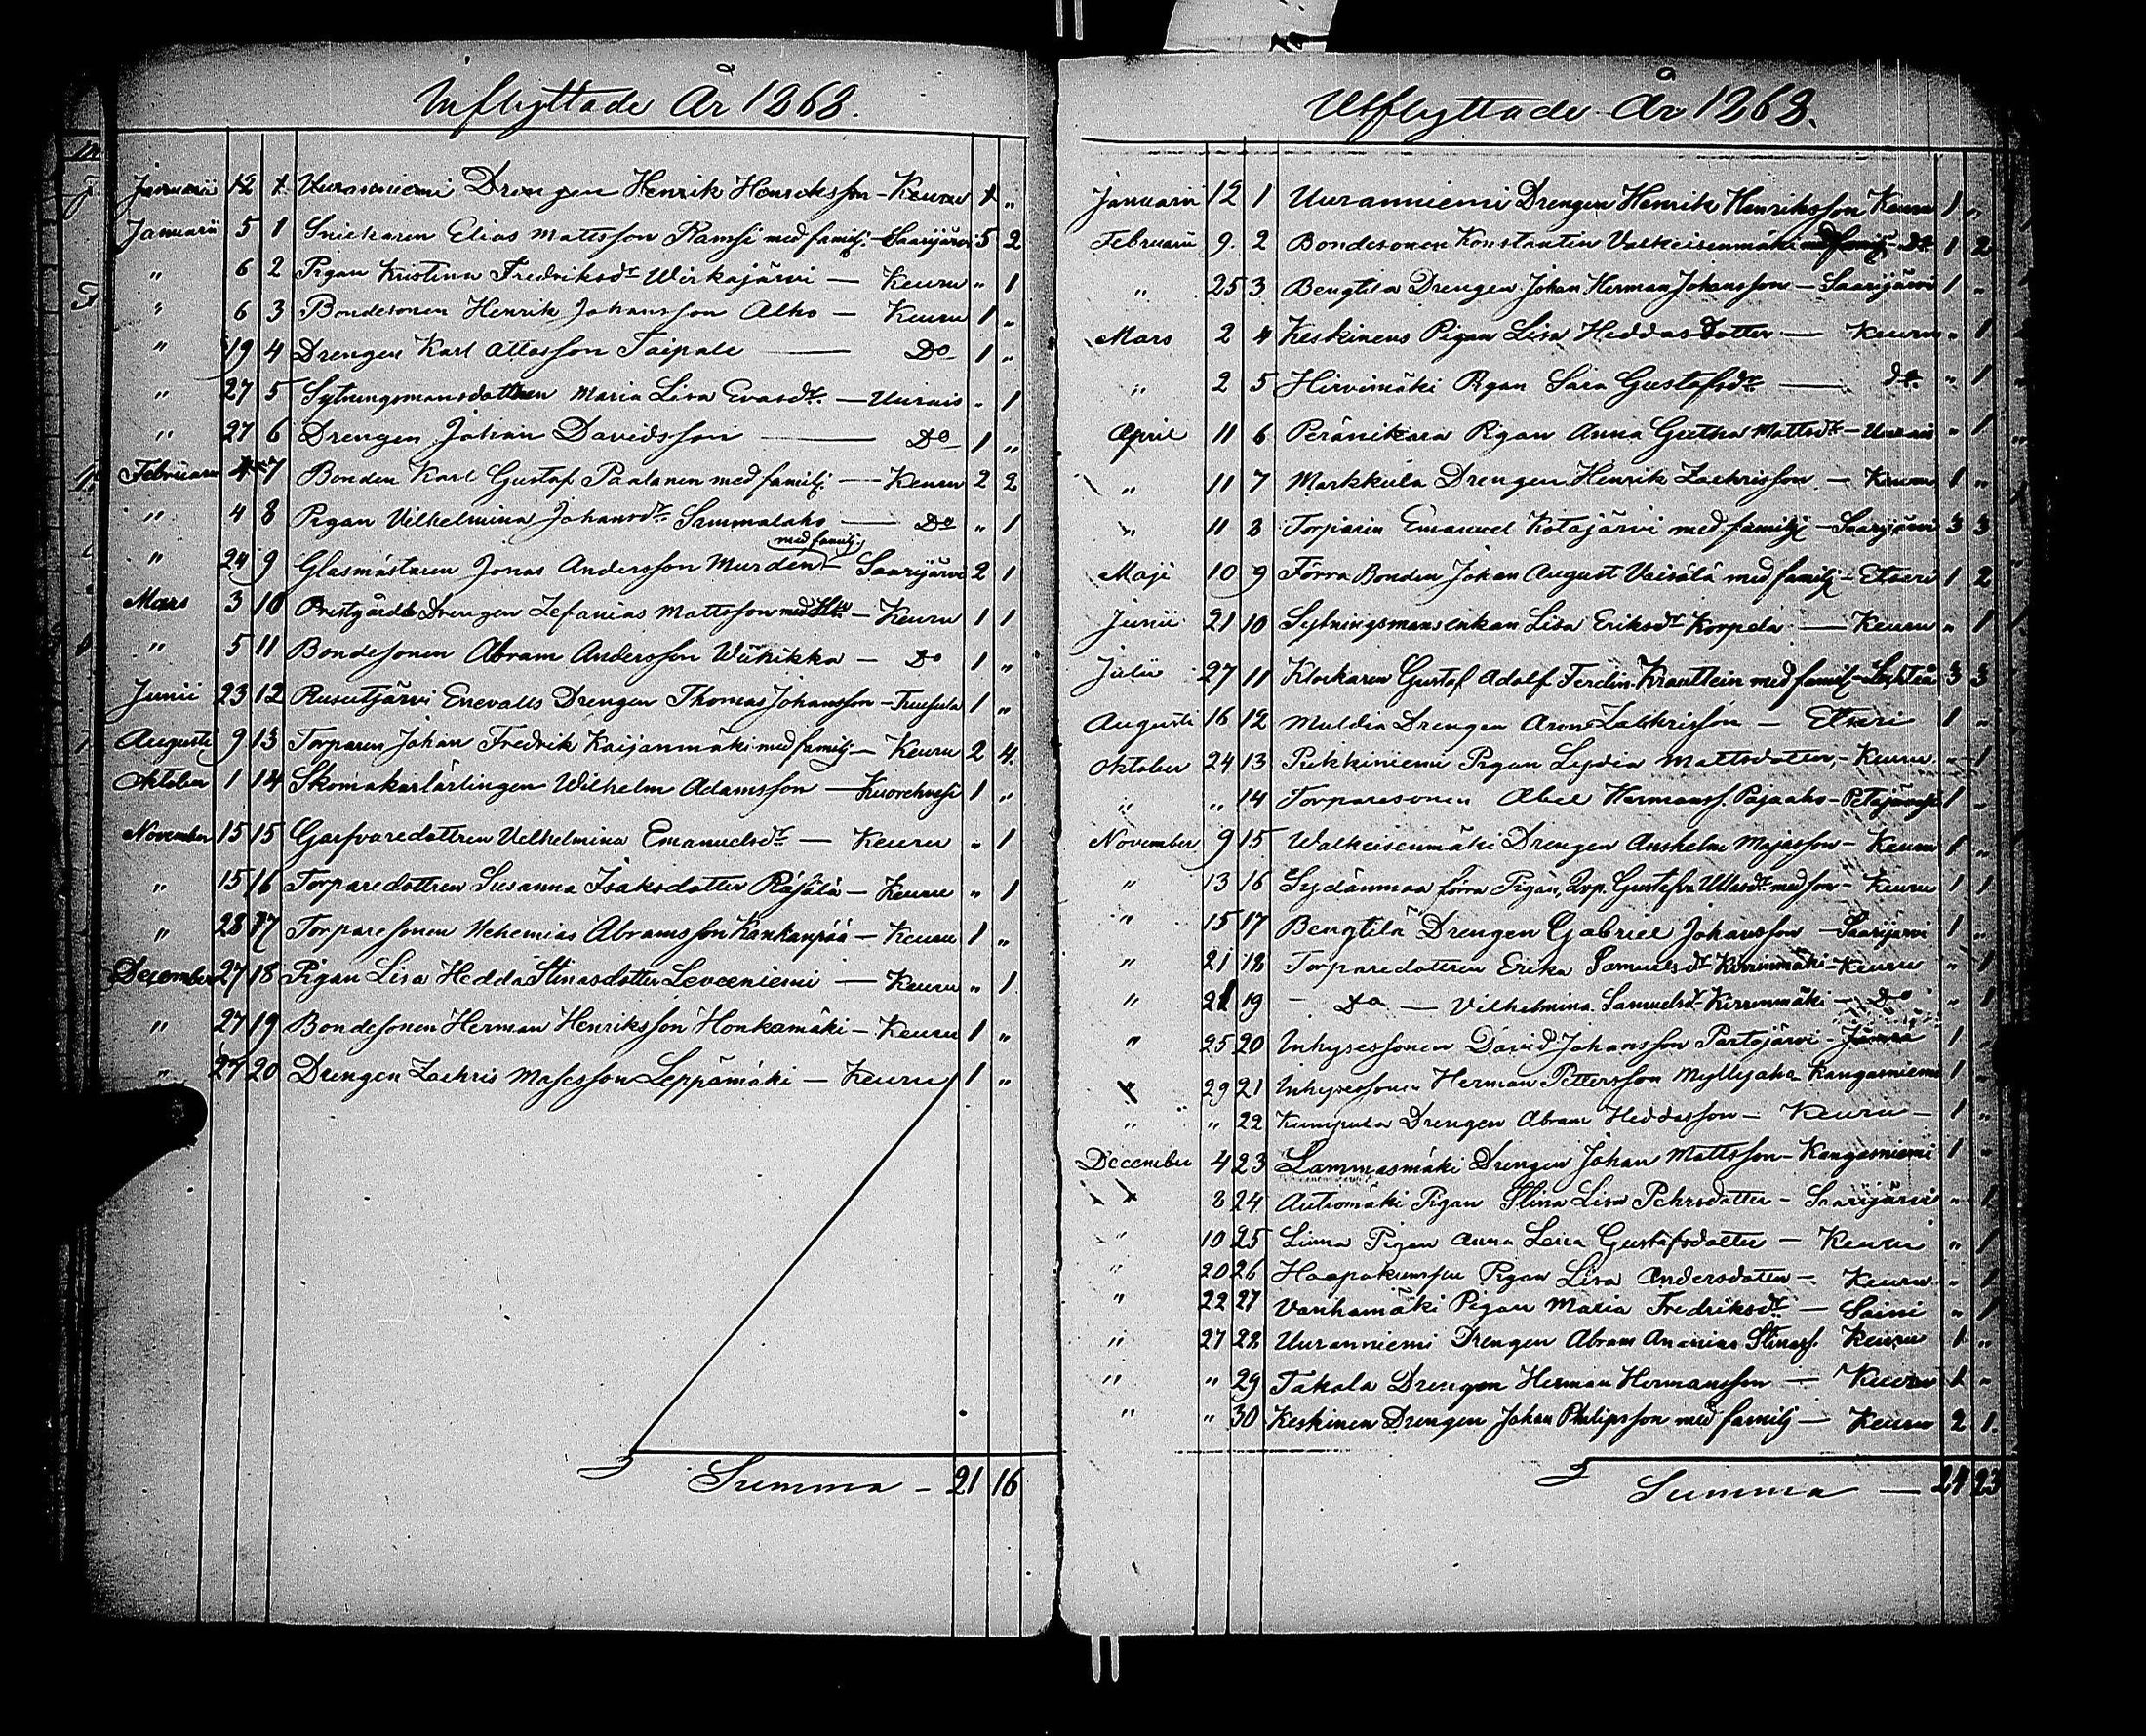 Inflyttade År 1868.
Januarii 12 1. Uuranniemi Drengen Henrik Henriksson - Keuru 1 "
Januarii 5 1 Snickaren Elias Mattsson Ramsi med familj. - Saarijärvi 5 2
" 6 2 Pigan Kristina Fredriksdr Wirkajärvi — Keuru " 1
" 6 3 Bondesonen Henrik Johansson Alho — Keuru 1 "
" 19 4 Drengen Karl Attosson Taipale — Do 1 "
" 27 5 Sytningsmansdottren Maria Lisa Evasdr. — Uurais " 1
" 27 6 Drengen Johan Davidsson — Do 1 "
Februarii 4 7 Bonden Karl Gustaf Paalanen med familj — Keuru 2 2
" 4 8 Pigan Vilhelmina Johansdr Summalaho — Do " 1
" 24 9 Glasmästaren Jonas Andersson Murden med familj - Saarijärvi 2 1
Mars 3 10 Prestgårds Drengen Zefanias Mattsson med — Keuru 1 1
" 5 11 Bondesonen Abram Andersson Wiikikka — Do 1 "
Junii 23 12 Rusutjärvi Enevalls Drengen Thomas Johansson - Tuusula 1 "
Augusti 9 13 Torparen Johan Fredrik Kaijanmäki med familj — Keuru 2 4.
Oktober 1 14 Skomakarlärlingen Wilhelm Adamsson — Kuorehvesi 1 "
November 15 15 Garfvaredottren Vilhelmina Emanuelsdr — Keuru " 1
" 15 16 Torparedottren Susanna Isaksdotter Räjälä — Keuru " 1
" 28 17 Torparesonen Nehemias Abramsson Kankanpää — Keuru 1 "
December 27 18 Pigan Lisa Hedda Stinasdotter Leveeniemi — Keuru " 1
" 27 19 Bondesonen Herman Henriksson Honkamäki — Keuru 1 "
" 27 20 Drengen Zachris Masesson Leppämäki — Keuru 1 "
Summa - 21 16
Utflyttade År 1868.
Januarii 12 1 Uuranniemi Drengen Henrik Henriksson Keuru 1 "
Februarii 9. 2 Bondesonen Konstantin Valkeisenmäki med familj - do 1 2
" 25 3 Bengtila Drengen Johan Herman Johansson — Saarijärvi 1 "
Mars 2 4 Keskinens Pigan Lisa Heddas Dotter — Keuru " 1
" 2 5 Hirvimäki Pigan Sara Gustafsdr — do " 1
April 11 6 Peränikara Pigan Anna Gretha Mattsdr - Uurais " 1
" 11 7 Markkula Drengen Henrik Zachrisson — Keuru 1 "
" 11 8 Torparen Emanuel Kotajärvi med familj - Saarijärvi 3 3
Maji 10 9 Förra Bonden Johan August Vaisälä med familj - Etseri 1 2
Junii 21 10 Sytningsmansenkan Lisa Eriksdr Korpela — Keuru " 1
Julii 27 11 Klockaren Gustaf Adolf Ferdin. Krautlein med famil - 3 3
Augusti 16 12 Muldia Drengen Aron Zachrisson — Etseri 1 "
Oktober 24 13 Pukkiniemi Pigan Lydia Mattsdotter - Keuru " 1
" " 14 Torparesonen Abel Hermanss. Pajaaho - Petäjävesi 1 "
November 9 15 Walkeisenmäki Drengen Anshelm Majasson - Keuru 1 "
" 13 16 Sydänmaa förra Pigan, Gustafva Ullasdr med son - Keuru 1 1
" 15 17 Bengtilä Drengen Gabriel Johansson — Saarijärvi 1 "
" 21 18 Torparedottren Erika Samuelsdr Kirrinmäki - Keuru " 1
" 21 19 - Do — Vilhelmina Samuelsdr Kirrinmäki — Do " 1
" 25 20 Inhysessonen David Johansson Partajärvi - Jämsä 1 "
" 29 21 Inhysessonen Herman Pettersson Myllyaho Kangasniemi 1 "
" " 22 Kumpula Drengen Abram Heddasson — Keuru — 1 "
December 4 23 Lammasmäki Drengen Johan Mattsson - Kangasniemi 1 "
" 8 24 Autiomäki Pigan Stina Lisa Pehrsdotter - Saarijärvi " 1
" 10 25 Linna Pigan Anna Lena Gustafsdotter — Keuru " 1
" 20 26 Haapakumpu Pigan Lisa Andersdotter - Keuru " 1
" 22 27 Vanhamäki Pigan Maria Fredriksdr — Saini " 1
" 27 28 Uuranniemi Drengen Abram Ananias Stinass. Keuru 1 "
" " 29 Takala Drengen Herman Hermansson — Keuru 1 "
" " 30 Keskinen Drengen Johan Philipsson med familj — Keuru 2 1.
Summa — 24 23